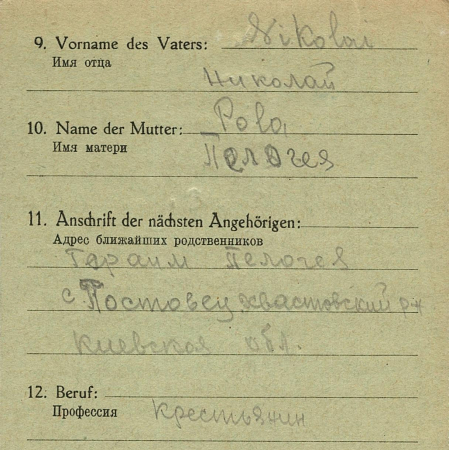 9. Vorname des Vaters: Nikolai
Имя отца
Николай
10. Name der Mutter: Pola
Имя матери Пелогея
11. Anschrift der nächsten Angehörigen:
Адрес ближайших родственников
Гараим Пелогея
с Постовец хвастовский р-н
Киевская обл.
12. Beruf:
Профессия Крестьянин